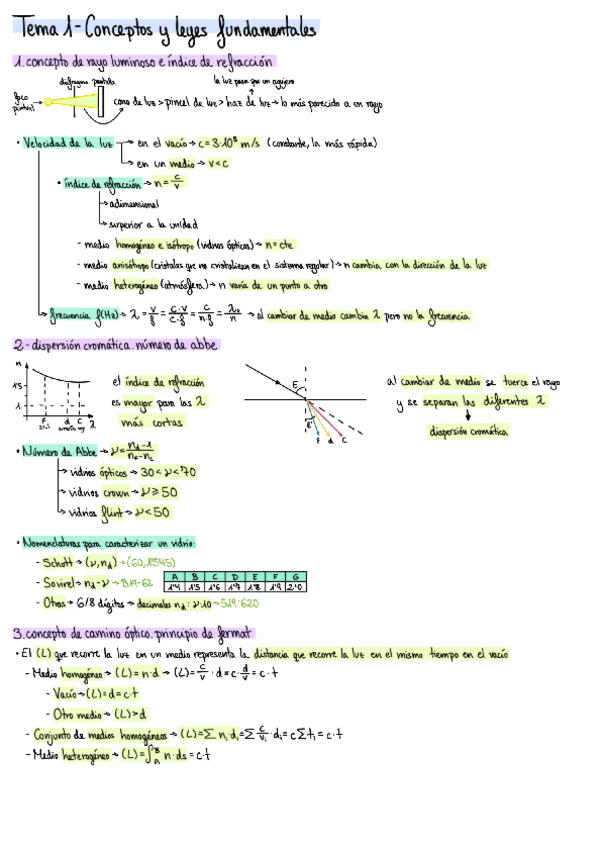 Tema 1-Conceptos y leyes fundamentales
1. concepto de rayo luminoso e índice de refracción
diafragma pantalla
la luz pasa por un agujero
foco puntual
cono de luz > pincel de luz > haz de luz → lo más parecido a un rayo
• Velocidad de la luz → en el vacío → c = 3·10⁸ m/s (constante, la más rápida)
→ en un medio → v < c
• índice de refracción → n = c/v
→ adimensional
→ superior a la unidad
- medio homogéneo e isótropo (vidrios ópticos) → n = cte
- medio anisótropo (cristales que no cristalizan en el sistema regular) → n cambia con la dirección de la luz
- medio heterogéneo (atmósfera) → n varía de un punto a otro
→ frecuencia f(Hz) → λ = v/f = c·v/c·f = c/n·f = λ₀/n → al cambiar de medio cambia λ pero no la frecuencia
2- dispersión cromática. número de abbe
n
1'5
1
F d C λ
azul amarillo rojo
el índice de refracción
es mayor para las λ
más cortas
ε
ε'
F d C
al cambiar de medio se tuerce el rayo
y se separan las diferentes λ
dispersión cromática
• Número de Abbe → ν = nd-1/nF-nC
→ vidrios ópticos → 30 < ν < 70
→ vidrios crown → ν ≥ 50
→ vidrios flint → ν < 50
• Nomenclaturas para caracterizar un vidrio:
- Schott → (ν, nd) → (60, 1'545)
- Sovirel → nd-ν → B.19-62
A B C D E F G
1'4 1'5 1'6 1'7 1'8 1'9 2'0
- Otros → 6/8 dígitos → decimales nd : ν·10 → 519 620
3. concepto de camino óptico. principio de fermat
• El (L) que recorre la luz en un medio representa la distancia que recorre la luz en el mismo tiempo en el vacío
- Medio homogéneo → (L) = n·d → (L) = c/v · d = c · d/v = c · t
- Vacío → (L) = d = c·t
- Otro medio → (L) > d
- Conjunto de medios homogéneos → (L) = Σ nᵢ·dᵢ = Σ c/vᵢ · dᵢ = c Σ tᵢ = c·t
- Medio heterogéneo → (L) = ∫ₐᴮ n·ds = c·t